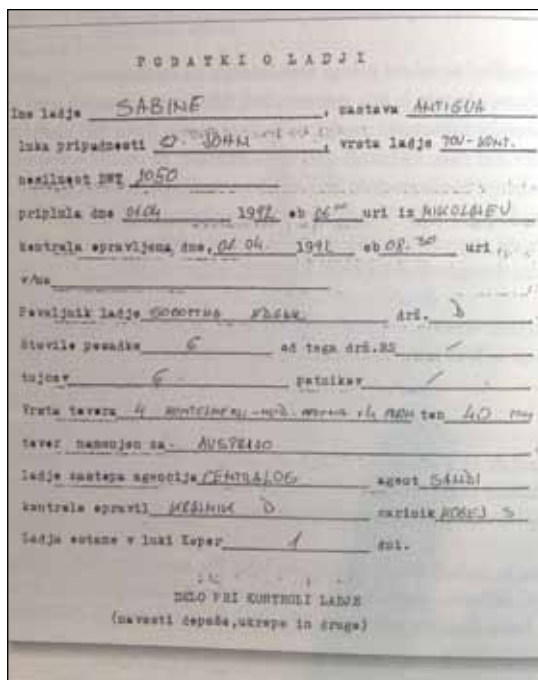 PODATKI O LADJI
Ime ladje SABINE, zastava ANTIGUA
luka pripadnosti JOHN, vrsta ladje TOV-KONT.
nosilnost DWT 1050
priplula dne 01.04 1992 ob 06⁰⁰ uri iz NIKOLAEV
kontrola opravljena dne, 01.04. 1992 ob 08.30 uri
v/na
Poveljnik ladje drž. D
Število posadke 6 od tega drž.RS /
tujcev 6 potnikov /
Vrsta tovora 4 ton 40
tovor namenjen za AVSTRIJO
ladjo zastopa agencija CENTRALOG agent SANDI
kontrolo opravil D carinik S
Ladja ostane v luki Koper 1 dni.
DELO PRI KONTROLI LADJE
(navesti depeše,ukrepe in drugo)